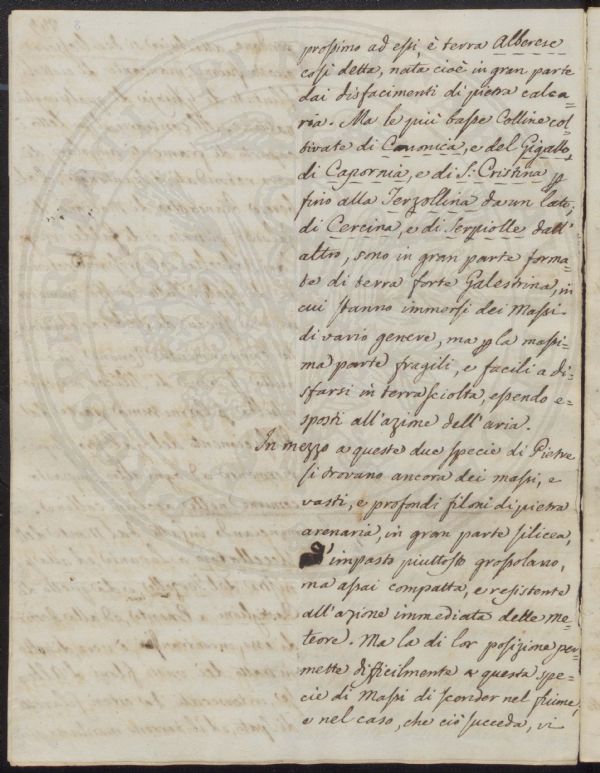 prossimo ad essi, è terra Alberese
così detta, nata cioè in gran parte
dai disfacimenti di pietra calca=
ria. Ma le più basse Colline col=
tivate di Canonica, e del Gigallo,
di Capornia, e di S: Cristina p
fino alla Terzollina da un lato,
di Cercina, e di Serpiolle dall'
altro, sono in gran parte forma=
te di terra forte Galestrina, in
cui stanno immersi dei Massi
di vario genere, ma p la massi=
ma parte fragili, e facili a di=
sfarsi in terra sciolta, essendo e=
sposti all'azione dell'aria.
In mezzo a queste due specie di Pietre
si trovano ancora dei massi, e
vasti, e profondi filoni di pietra
arenaria, in gran parte silicea,
d'impasto piuttosto grossolano,
ma assai compatta, e resistente
all'azione immediata delle me=
teore. Ma la di lor posizione per=
mette difficilmente a questa spe=
cie di Massi di scender nel fiume,
e nel caso, che ciò succeda, vi